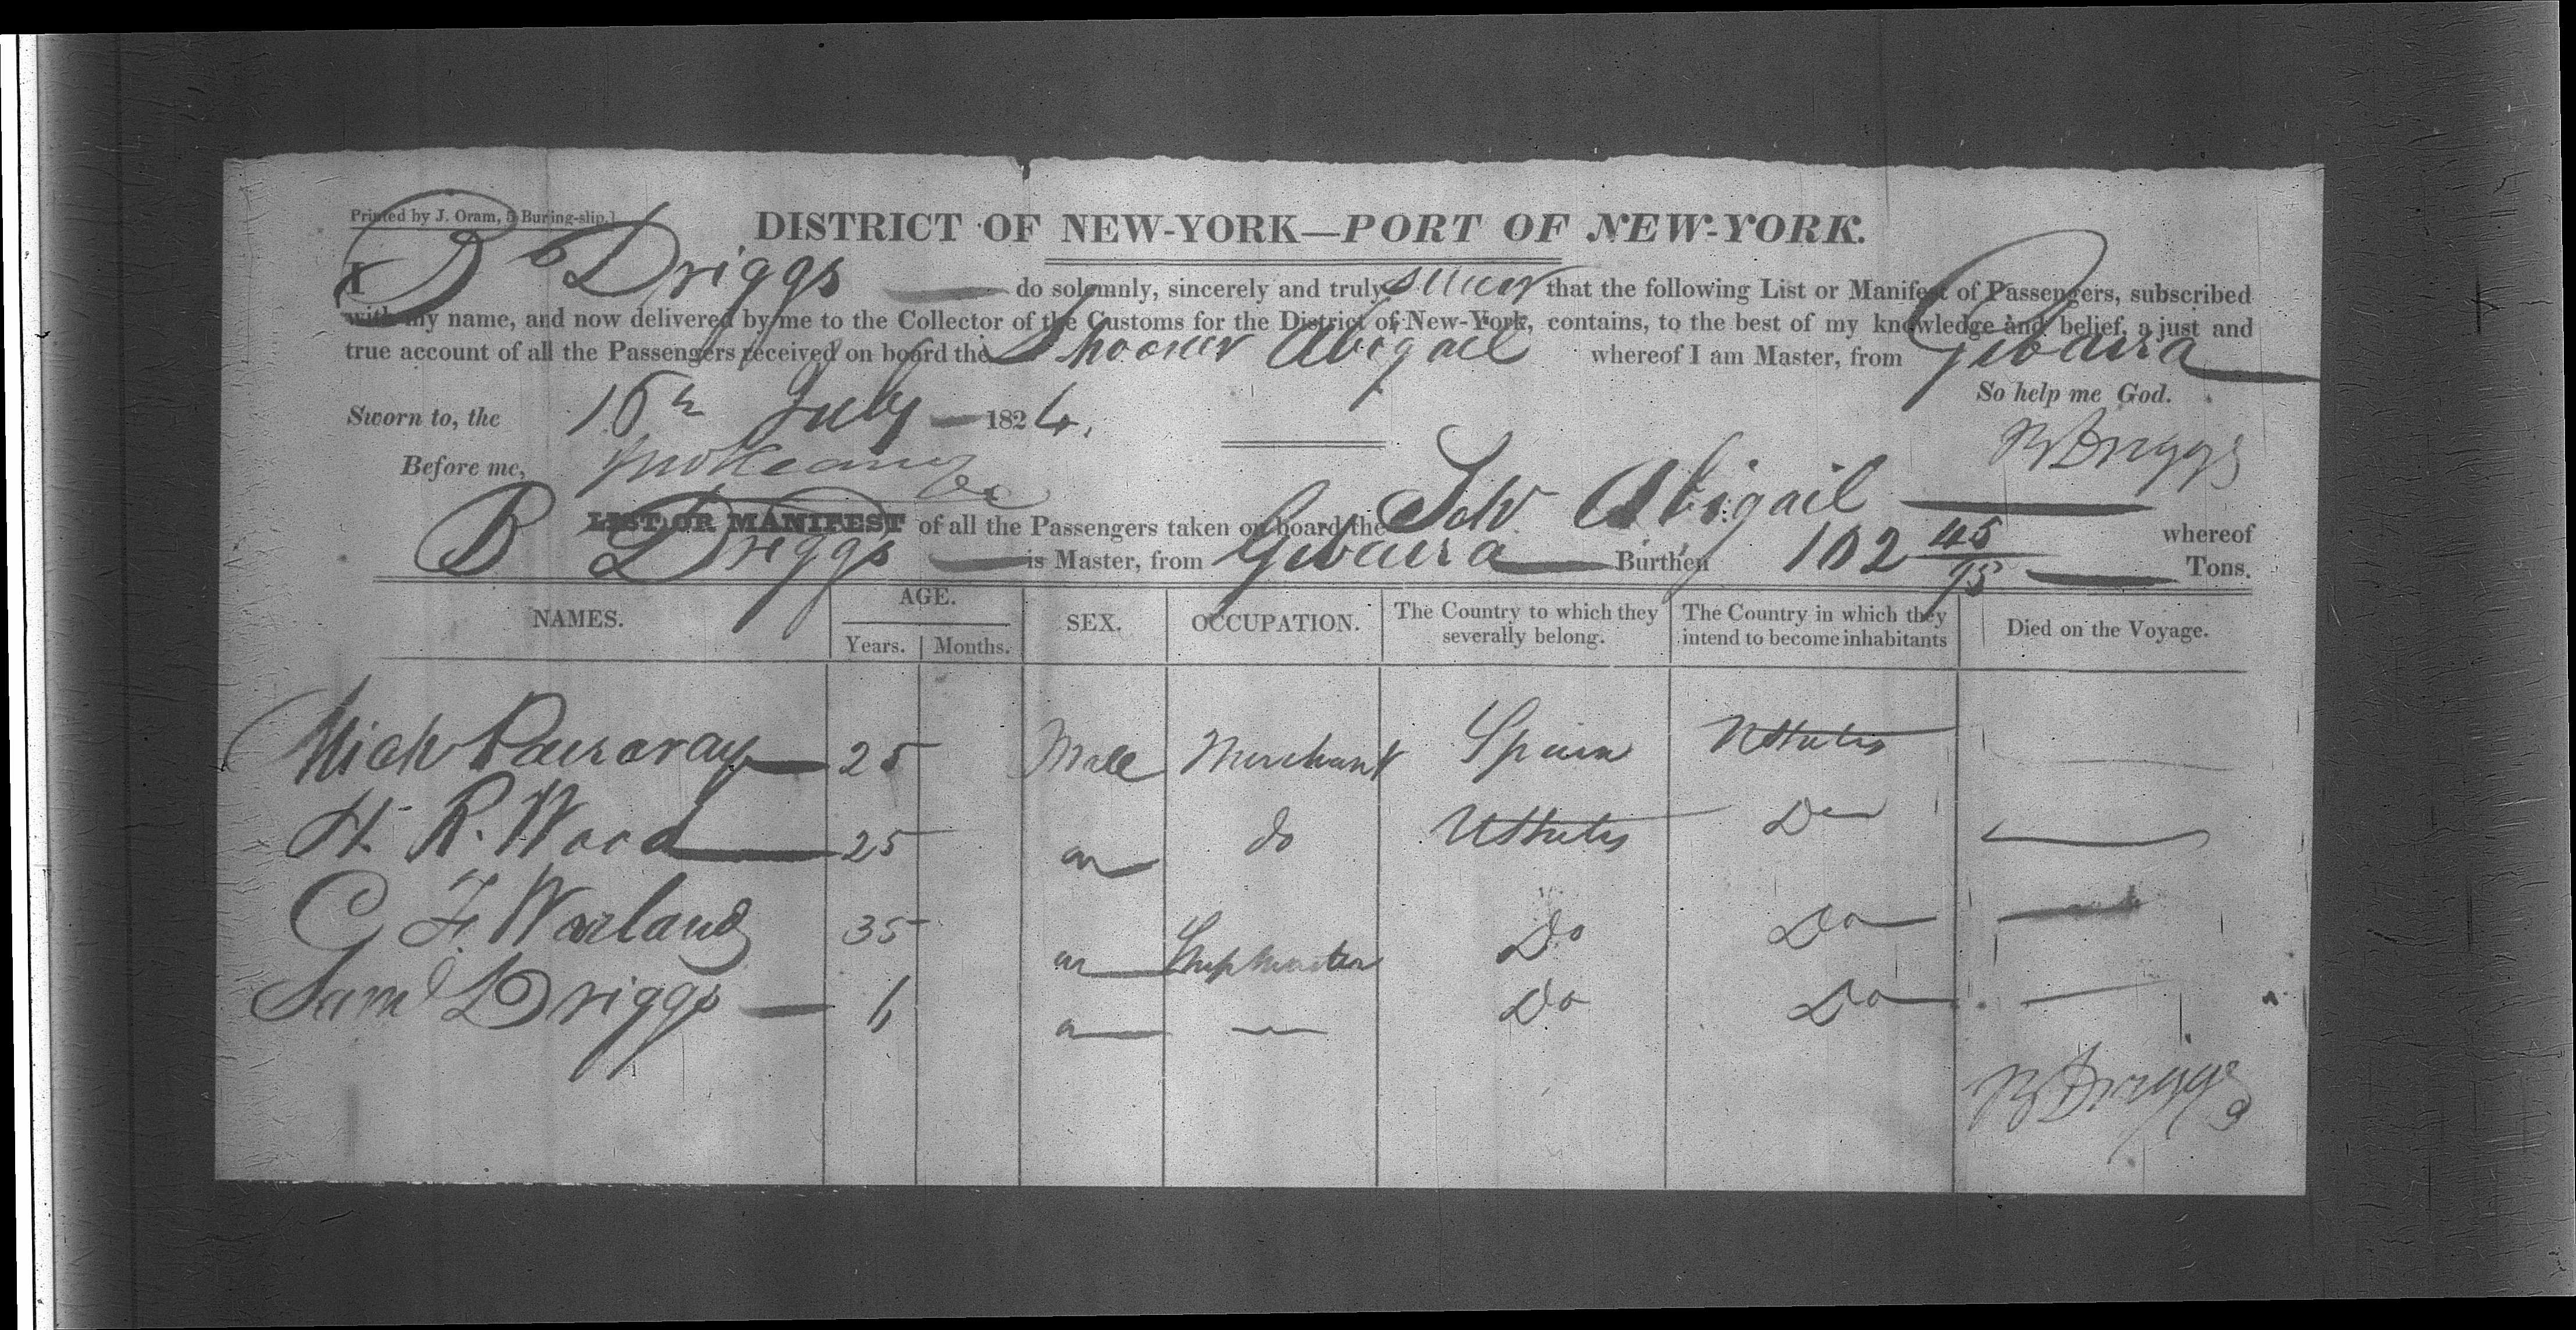 Printed by J. Oram, 5 Buring-slip.]
DISTRICT OF NEW-YORK—PORT OF NEW-YORK.
I B Driggs do solemnly, sincerely and truly swear that the following List or Manifest of Passengers, subscribed
with my name, and now delivered by me to the Collector of the Customs for the District of New-York, contains, to the best of my knowledge and belief, a just and
true account of all the Passengers received on board the Shooner Abigail whereof I am Master, from Gibarra
So help me God.
Sworn to, the July 1824.
B Driggs
Before me,
LIST OR MANIFEST of all the Passengers taken on board the Schr Abigail whereof
B Driggs is Master, from Gibarra Burthen 102 45/95 Tons.
NAMES. AGE. SEX. OCCUPATION. The Country to which they severally belong. The Country in which they intend to become inhabitants Died on the Voyage.
Years. Months.
Mich 25 Male Merchant Spain UStates
H. R. Wood 25 do UStates Do
G F. Warland 35 Shipmaster Do Do
Saml Driggs 6 Do Do
B Driggs